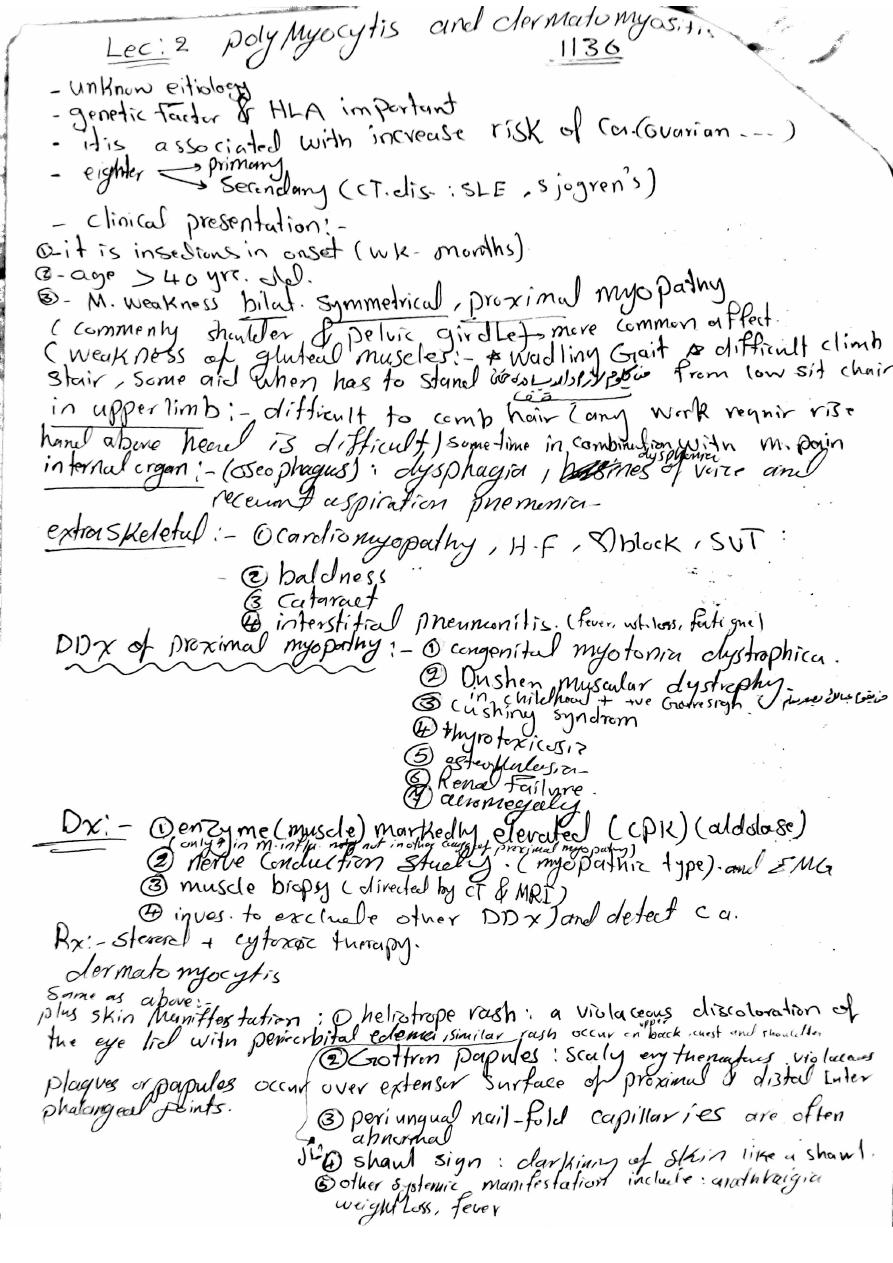 Lec: 2 polyMyocytis and dermatomyositi..
1136
- unknow eitiology
- genetic factor & HLA important
- it is associated with increase risk of Ca.(ovarian ---- )
- eighter → primary
→ Secendary (CT.dis. : SLE , Sjogren's)
- clinical presentation:-
①-it is insedions in onset (wk- months)
②-age > 40 yrs. old.
③- M. weakness bilat. symmetrical , proximal myopathy
( commenly shoulder & pelvic girdle → more common affect.
( weakness of gluteal muscles:- * wadling Gait * difficult climb
stair , some aid when has to stand from low sit chair
in upper limb :- difficult to comb hair (any work requir rise
hand above head is difficult) sometime in combination with m. pain
internal organ :- (oseophagus) : dysphagia , dysphonia of voice and
recurent aspiration pnemenia-
extraskeletal :- ①cardiomyopathy , H.F , ♡block , SVT :
- ② baldness
③ cataract
④ interstitial pneumonitis. (fever, wt.loss, fatigue)
DDx of proximal myopathy :- ① congenital myotonia dystrophica .
② Dushen muscular dystrephy-
in childhood + +ve Gowersign
③ cushing syndrom
④ thyrotoxicosis
⑤ osteomalasia-
⑥ Renal failure .
⑦ acromegaly
Dx:- ① enzyme (muscle) markedly elevated (CPK) (aldolase)
(only ↑ in m. infla. not in other causes of proximal myopathy)
② nerve conduction study . (myopathic type). and EMG
③ muscle biopsy (directed by CT & MRI)
④ inves. to excluale other DDx) and detect ca.
Rx:- steroed + cytoxic therapy.
dermatomyocytis
same as above:-
plus skin Maniffestation : ① heliotrope rash : a violaceous discoloration of
the eye lid with periorbital edema, similar rash occur on upper back, chest and shoulder
② Gottron papules : scaly erythematous, violaceous
plaques or papules occur over extensor surface of proximal & distal Inter
phalangeal joints.
③ periungual nail-fold capillaries are often
abnormal
④ shawl sign : darkinng of skin like a shawl.
⑤ other systemic manifestation include : arathralgia
weight loss, fever